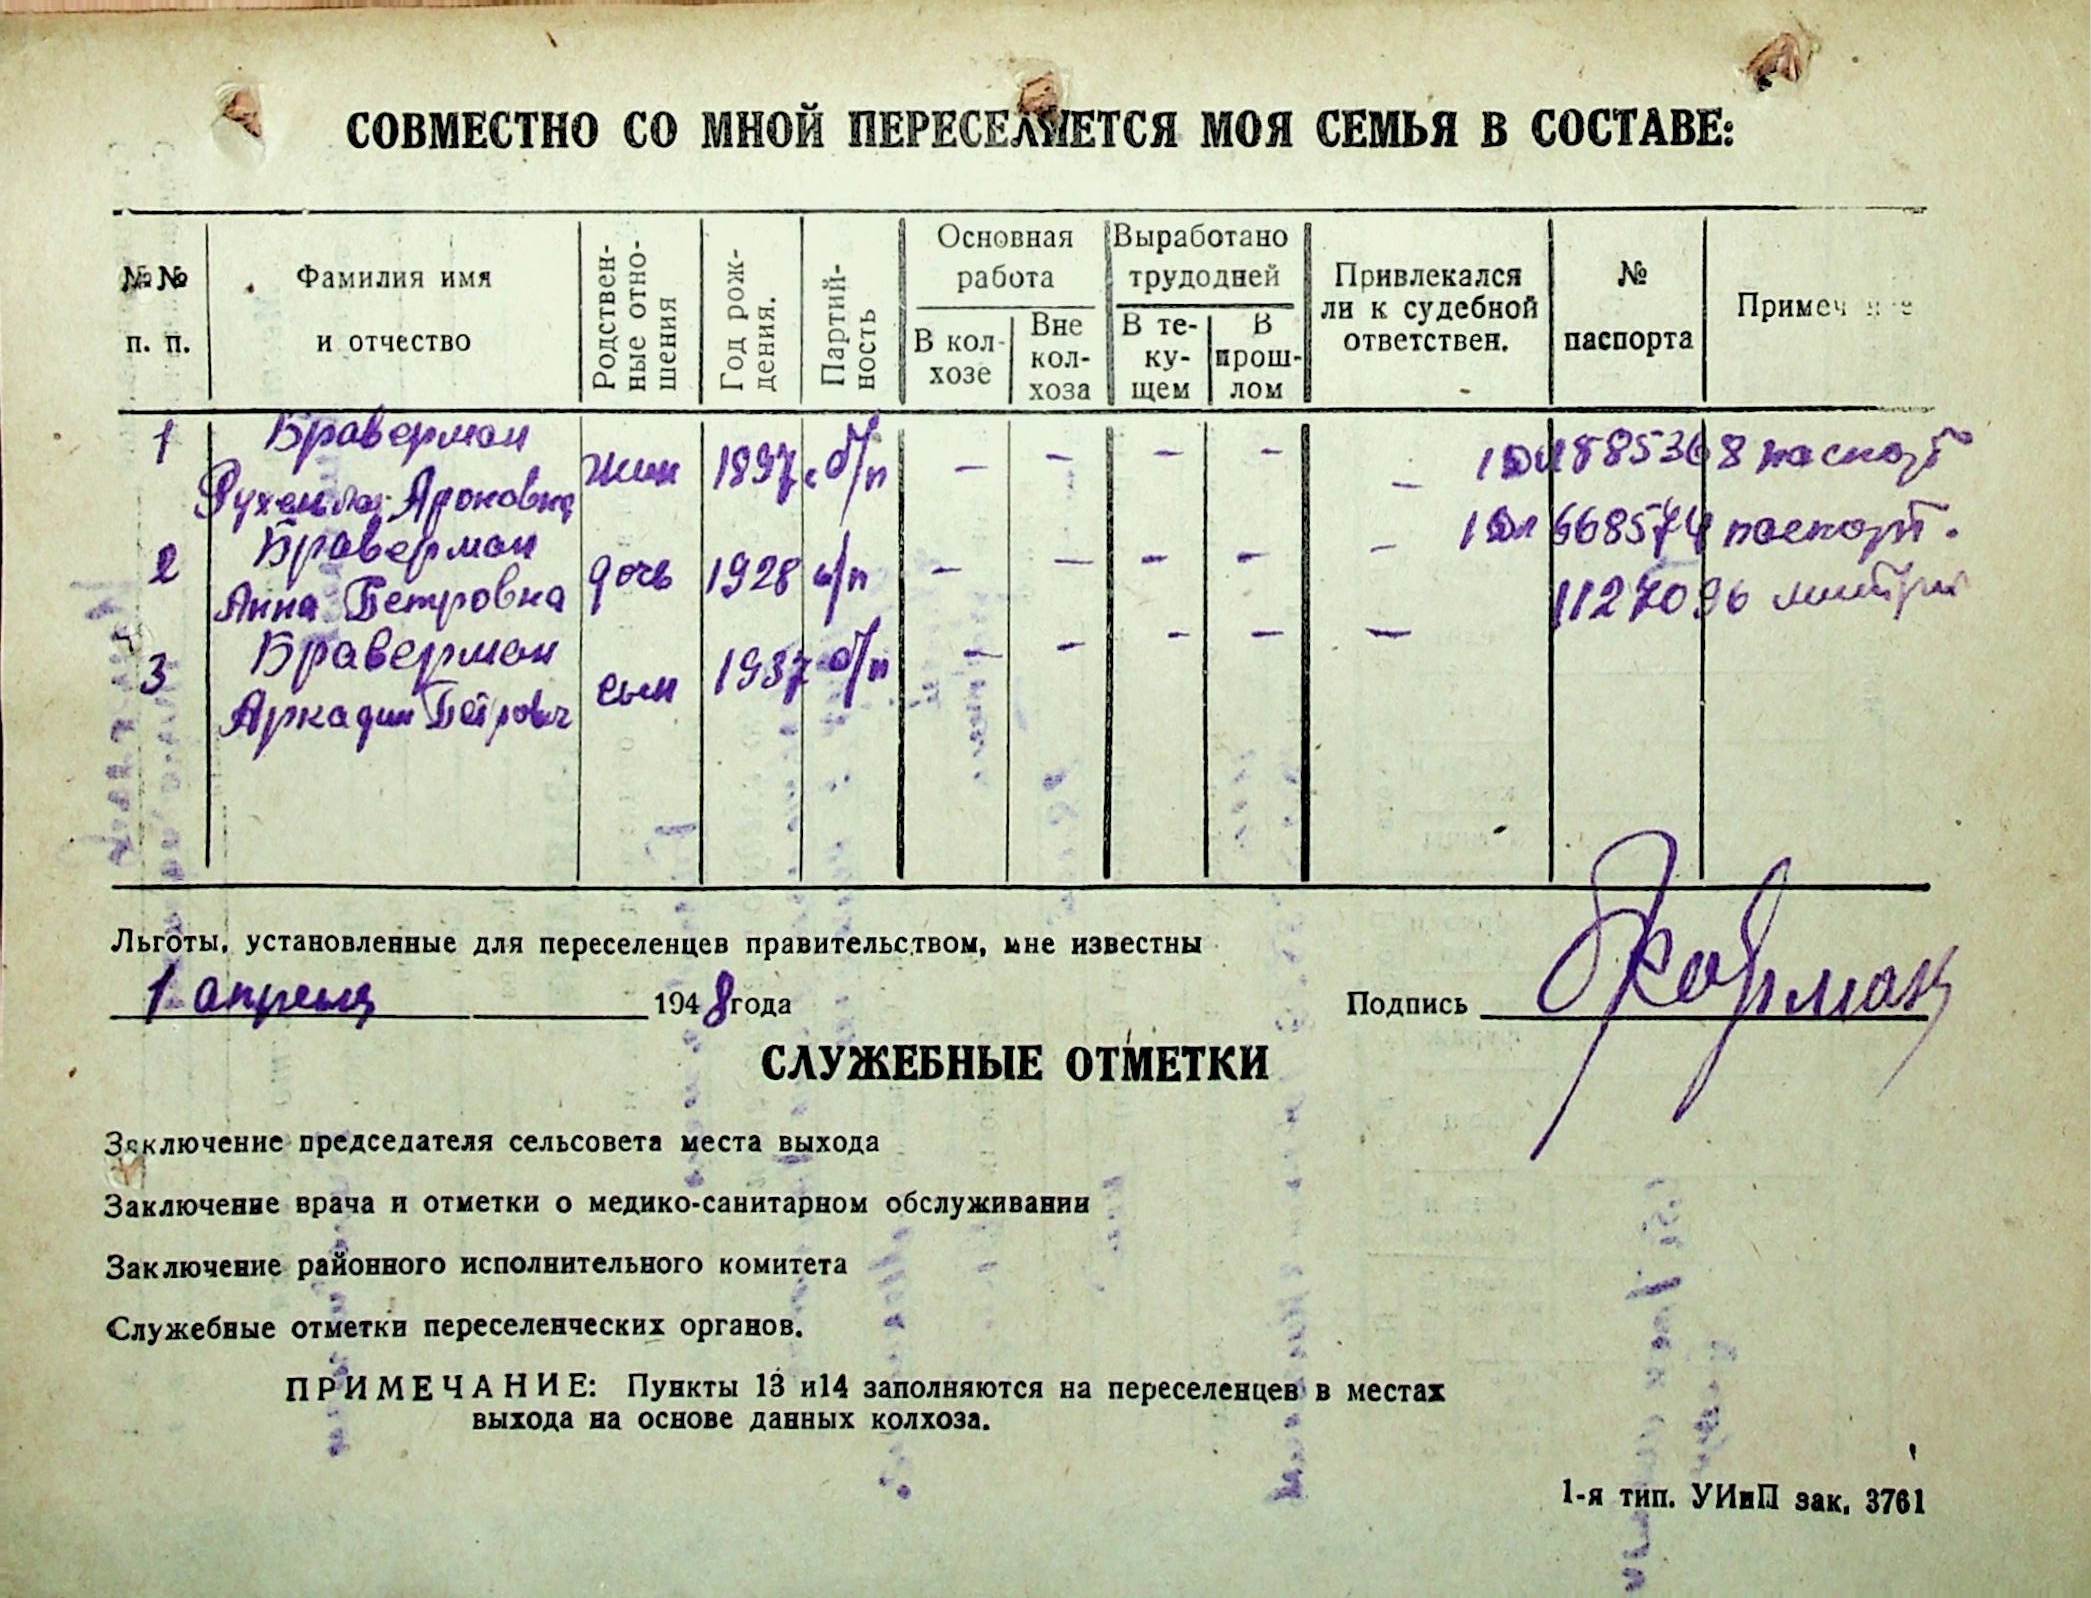 СОВМЕСТНО СО МНОЙ ПЕРЕСЕЛЯЕТСЯ МОЯ СЕМЬЯ В СОСТАВЕ:
№№ п. п.
Фамилия имя и отчество
Родствен-
ные отно-
шения
Год рож-
дения.
Партий-
ность
Основная
работа
В кол-
хозе
Вне
кол-
хоза
Выработано
трудодней
В те-
ку-
щем
В
прош-
лом
Привлекался
ли к судебной
ответствен.
№
паспорта
Примеч
1 Браверман
Ароновна жин 1897 б/п — — — — — 885368 паспорт
2 Браверман
Анна Петровна дочь 1928 — — — — — 668574 паспорт.
3 Браверман
Аркадии Петрович сын 1937 б/п — — — — — 1127096
Льготы, установленные для переселенцев правительством, мне известны
1 апреля 1948 года
Подпись
СЛУЖЕБНЫЕ ОТМЕТКИ
Заключение председателя сельсовета места выхода
Заключение врача и отметки о медико-санитарном обслуживании
Заключение районного исполнительного комитета
Служебные отметки переселенческих органов.
ПРИМЕЧАНИЕ: Пункты 13 и14 заполняются на переселенцев в местах
выхода на основе данных колхоза.
1-я тип. УИиП зак. 3761